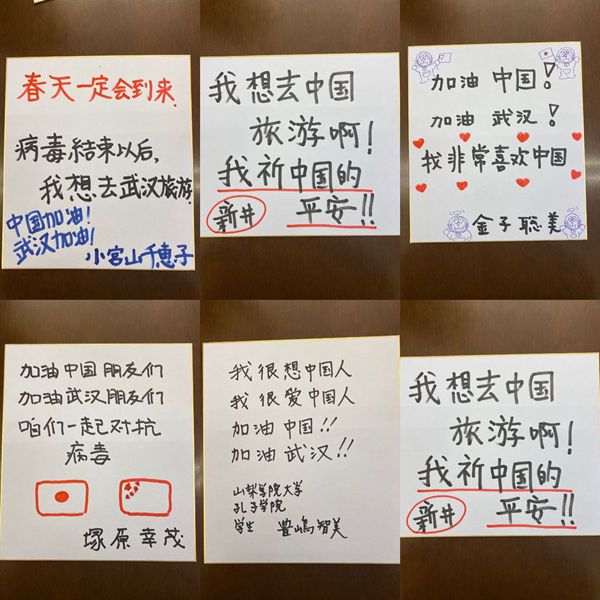 春天一定会到来
病毒結束以后,
我想去武汉旅游.
中国加油!
武汉加油!
小宮山千恵子
我想去中国
旅游啊!
我祈中国的
新井 平安!!
加油 中国!
加油 武汉!
我非常喜欢中国
金子聡美
加油中国朋友们
加油武汉朋友们
咱们一起对抗
病毒
塚原幸茂
我很想中国人
我很爱中国人
加油 中国!!
加油 武汉!!
山梨学院大学
孔子学院
学生 豊嶋智美
我想去中国
旅游啊!
我祈中国的
新井 平安!!